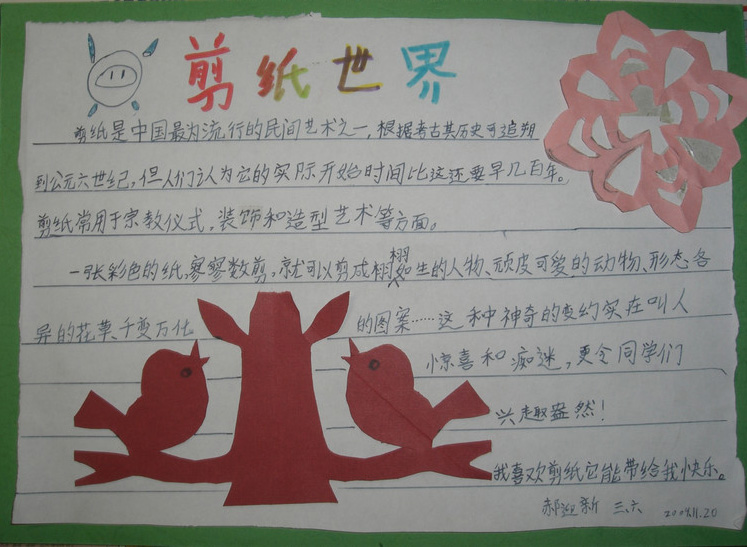 剪纸世界
剪纸是中国最为流行的民间艺术之一，根据考古其历史可追朔
到公元六世纪，但人们认为它的实际开始时间比这还要早几百年。
剪纸常用于宗教仪式，装饰和造型艺术等方面。
一张彩色的纸，寥寥数剪，就可以剪成栩栩如生的人物、顽皮可爱的动物、形态各
异的花草、千变万化的图案……这种神奇的变幻实在叫人
惊喜和痴迷，更令同学们
兴趣盎然！
我喜欢剪纸它能带给我快乐。
郝迎新 三、六 2009.11.20